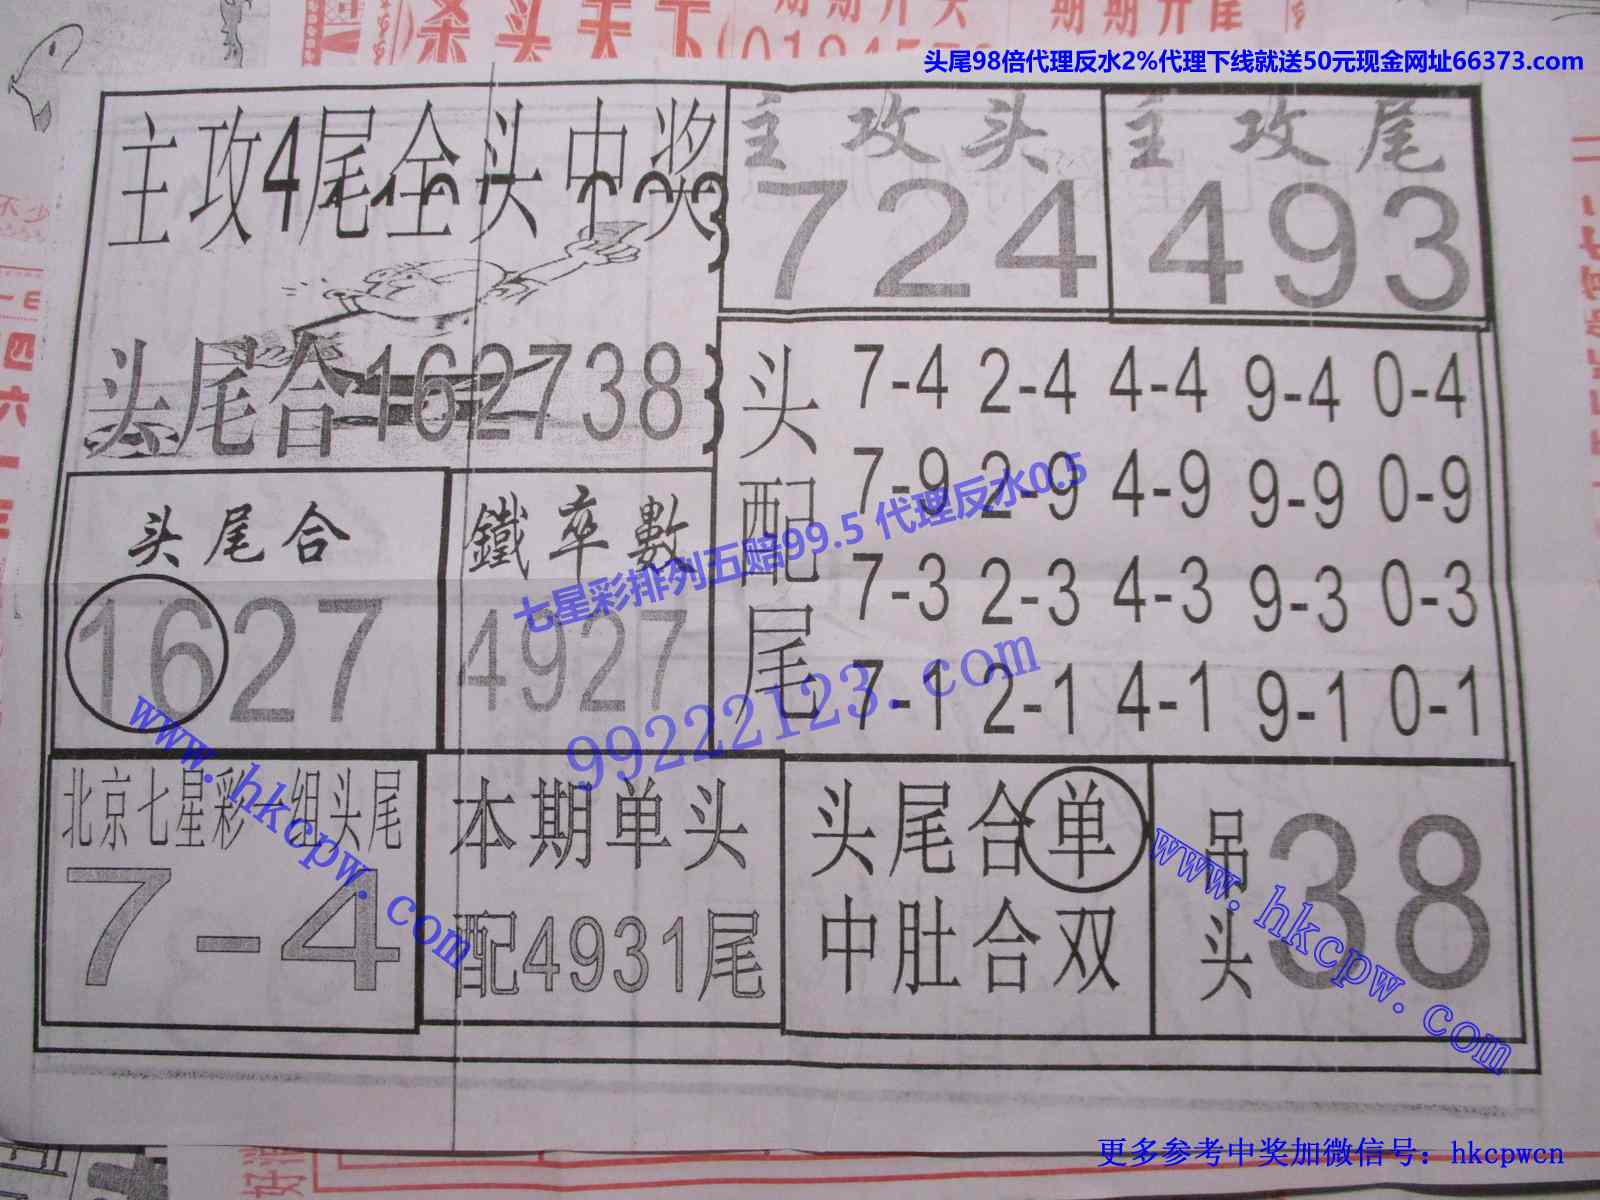 杀头天下
期期开尾
头尾98倍代理反水2%代理下线就送50元现金网址66373.com
主攻4尾全头中奖
主攻头
724
主攻尾
493
头尾合162738
头配尾
7-4 2-4 4-4 9-4 0-4
7-9 2-9 4-9 9-9 0-9
7-3 2-3 4-3 9-3 0-3
7-1 2-1 4-1 9-1 0-1
头尾合
1627
鐵率數
4927
七星彩排列五赔99.5 代理反水0.5
99222123.com
www.hkcpw.com
北京七星彩一组头尾
7-4
本期单头
配4931尾
头尾合单
中肚合双
吊头
38
www.hkcpw.com
不少
四六一
更多参考中奖加微信号：hkcpwcn